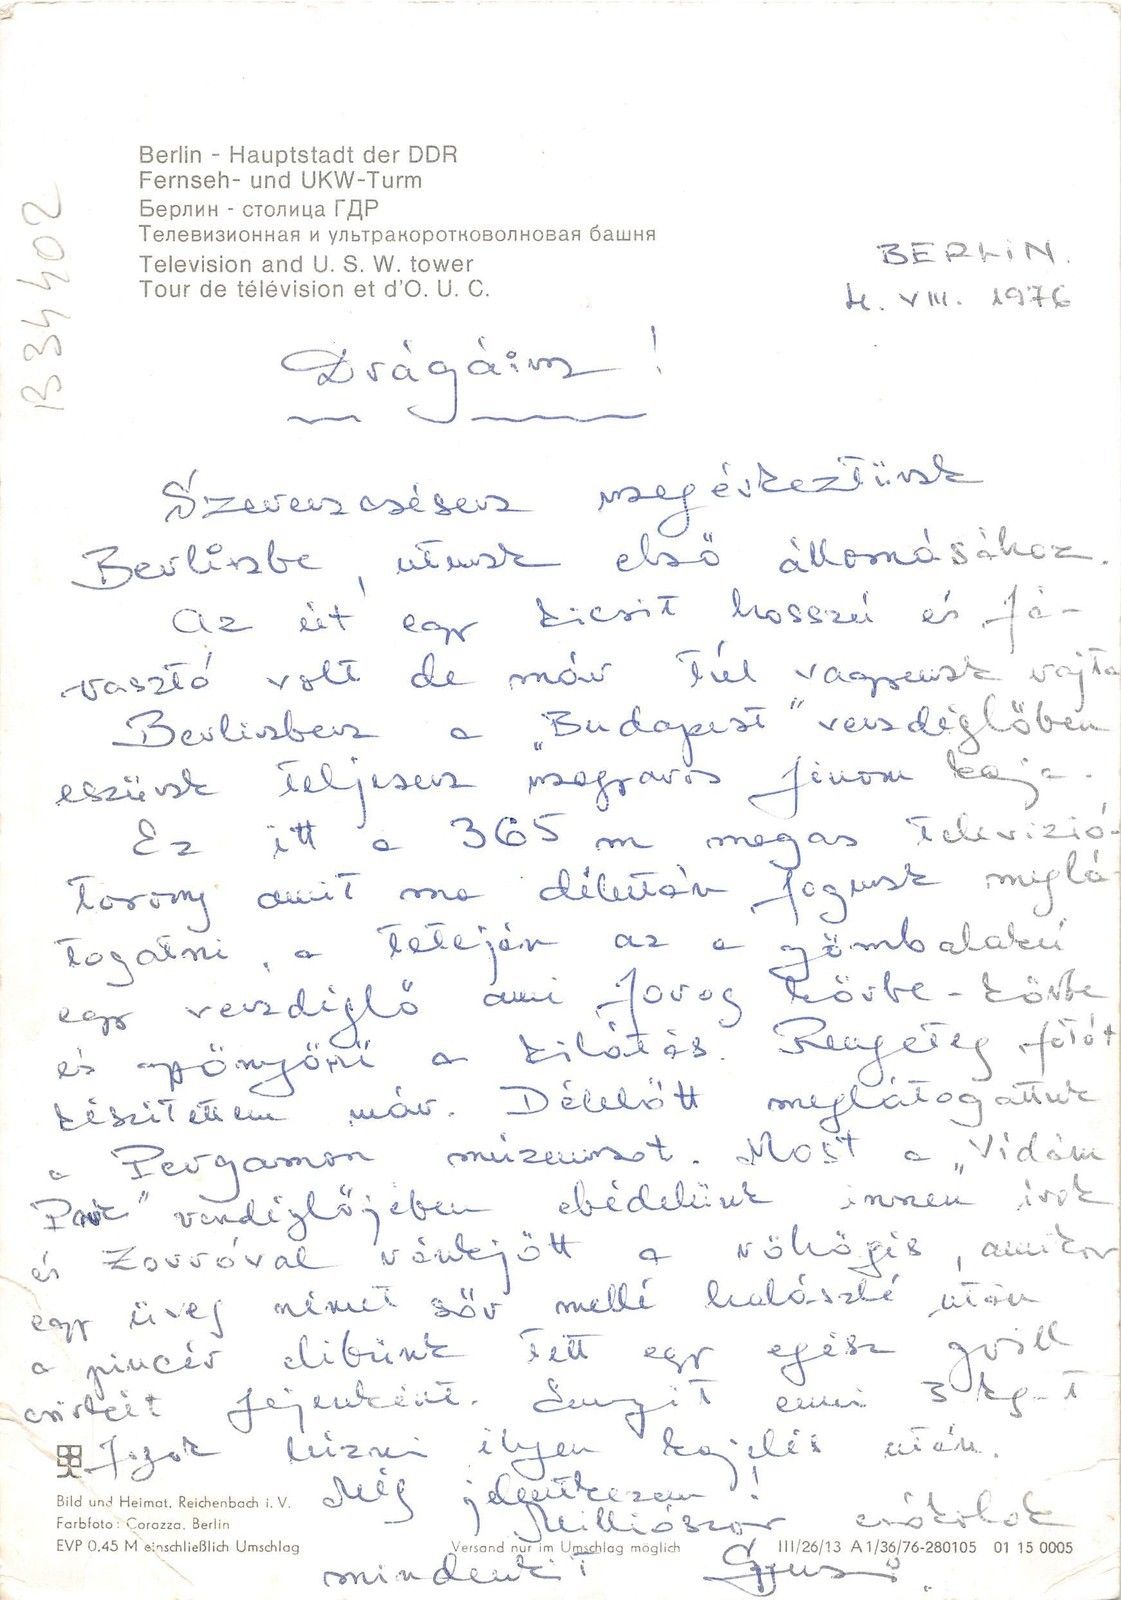 Berlin - Hauptstadt der DDR
Fernseh- und UKW-Turm
Берлин - столица ГДР
Телевизионная и ультракоротковолновая башня
Television and U. S. W. tower
Tour de télévision et d'O. U. C.
B34402
BERLIN.
4. VIII. 1976
Drágáim !
Szerencsésen megérkeztünk
Berlinbe, utunk első állomásához.
Az út egy kicsit hosszú és fá-
rasztó volt de már túl vagyunk rajta
Berlinben a „Budapest" vendéglőben
eszünk teljesen magyaros finom kaja.
Ez itt a 365 m magas televizió-
torony amit ma délután fogunk meglá-
togatni, a tetején az a gömbalakú
egy vendéglő ami forog körbe-körbe
és gyönyörű a kilátás. Rengeteg fotót
készitettem már. Délelőtt meglátogattuk
a Pergamon múzeumot. Most a „Vidám
Park" vendéglőjében ebédelünk innen irok
és Zorróval ránkjött a röhögés, amikor
egy üveg német sör mellé halászlé után
a pincér elibünk tett egy egész grill
csirkét fejenként. Ennyit enni 3 kg-t
fogok hízni ilyen kajelés után.
Még jelentkezem !
Milliószor csókolok
mindenkit Gyuszi
Bild und Heimat, Reichenbach i. V.
Farbfoto: Corazza, Berlin
EVP 0,45 M einschließlich Umschlag
Versand nur im Umschlag möglich
III/26/13 A 1/36/76-280105 01 15 0005